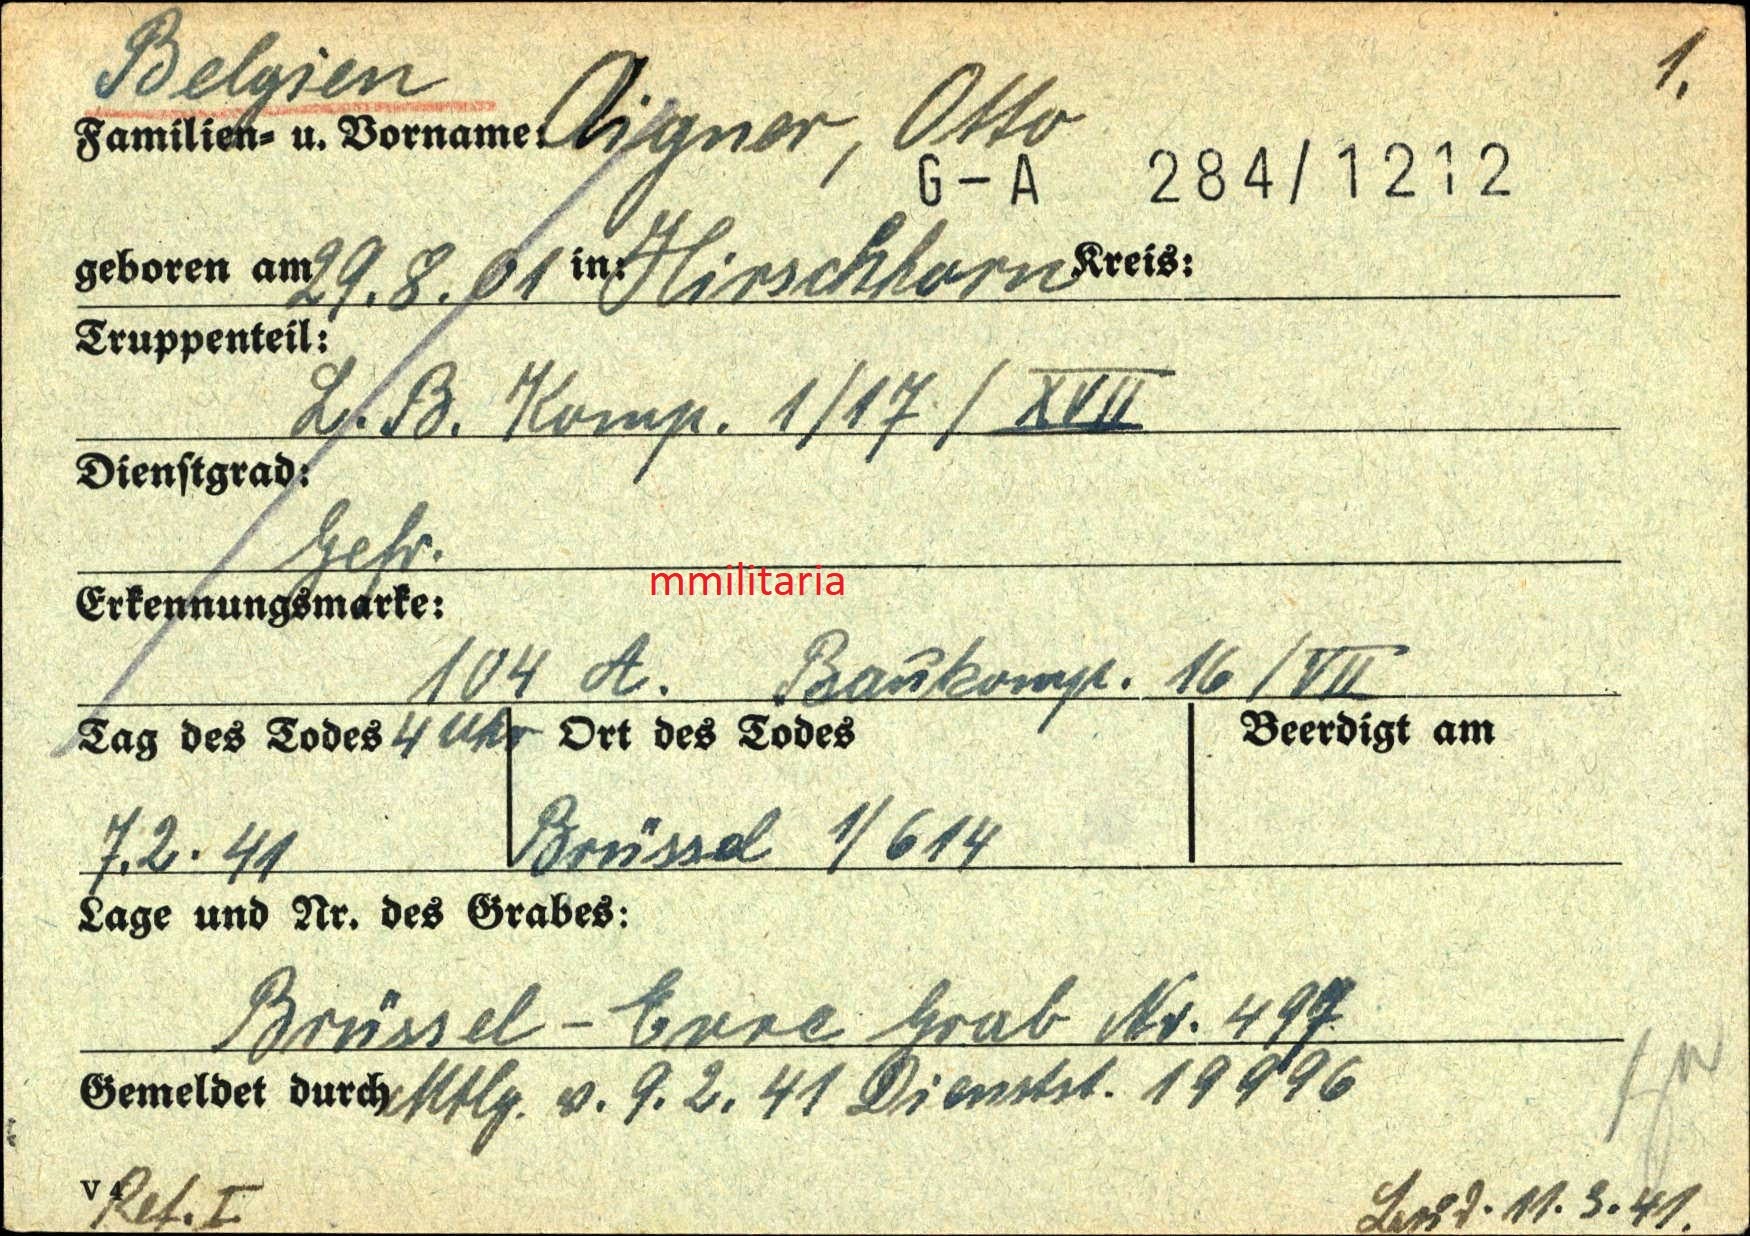 Belgien
1.
Familien- u. Vorname: Aigner, Otto
G-A 284/1212
geboren am 29.8.01 in: Hirschhorn Kreis:
Truppenteil:
L. B. Komp. 1/17/XVII
Dienstgrad:
Gefr.
mmilitaria
Erkennungsmarke:
104 A. Baukomp. 16/VII
Tag des Todes 4 Uhr Ort des Todes Beerdigt am
7.2.41 Brüssel 1/614
Lage und Nr. des Grabes:
Brüssel - Evre Grab Nr. 497
Gemeldet durch Mtlg. v. 9.2.41 Dienstst. 19996
V 4
Ref. I 11.3.41.